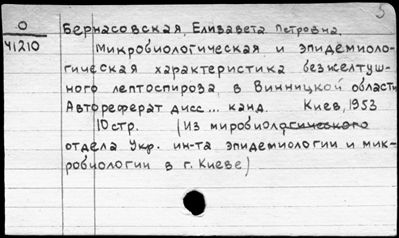 5
О
41210
Бернасовская, Елизавета Петровна.
Микробиологическая и эпидемиоло-
гическая характеристика безжелтуш-
ного лептоспироза в Винницкой области
Автореферат дисс... канд. Киев, 1953
10 стр. (Из миробиологического
отдела Укр. ин-та эпидемиологии и мик-
робиологии в г. Киеве)